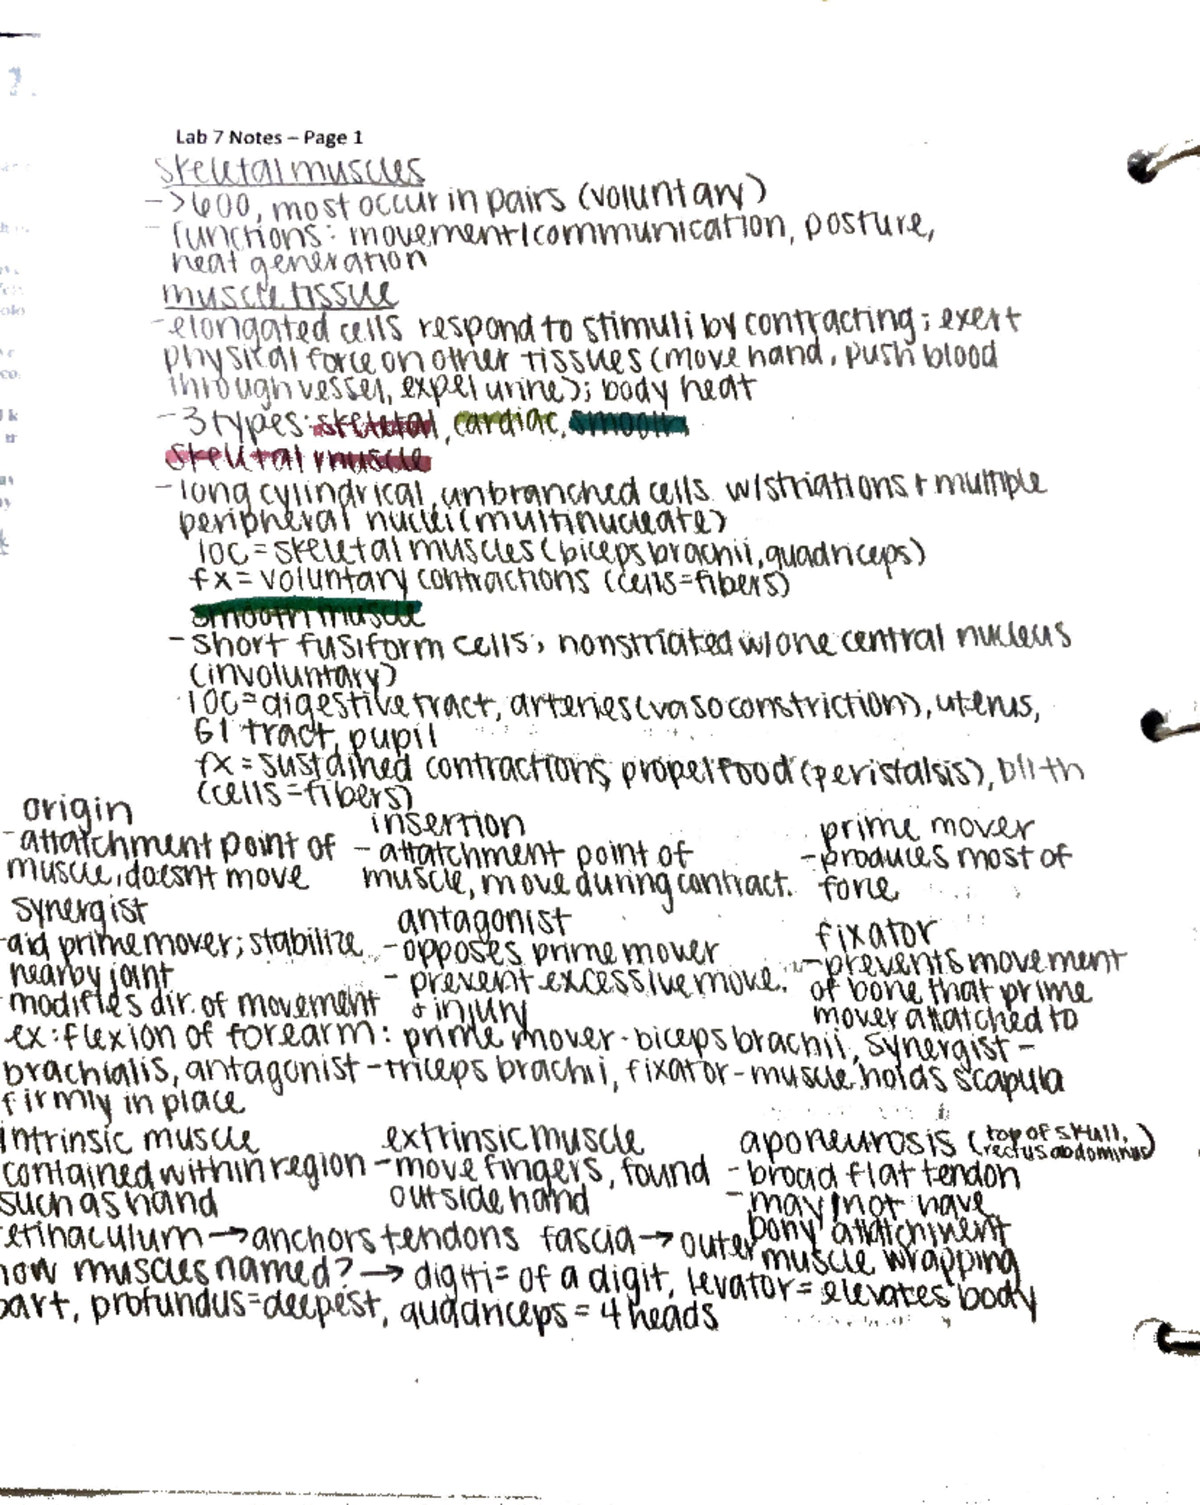 Lab 7 Notes – Page 1
skeletal muscles
- >600, most occur in pairs (voluntary)
- functions: movement/communication, posture,
heat generation
muscle tissue
- elongated cells respond to stimuli by contracting; exert
physical force on other tissues (move hand, push blood
through vessel, expel urine); body heat
- 3 types: skeletal, cardiac, smooth
skeletal muscle
- long cylindrical, unbranched cells w/striations + multiple
peripheral nuclei (multinucleate)
loc = skeletal muscles (biceps brachii, quadriceps)
fx = voluntary contractions (cells = fibers)
smooth muscle
- short fusiform cells, nonstriated w/one central nucleus
(involuntary)
loc = digestive tract, arteries (vasoconstriction), uterus,
GI tract, pupil
fx = sustained contractions, propel food (peristalsis), birth
(cells = fibers)
origin
- attatchment point of
muscle, doesnt move
insertion
- attatchment point of
muscle, move during contract.
prime mover
- produces most of
force
synergist
- aid prime mover; stabilize
nearby joint
- modifies dir. of movement
antagonist
- opposes prime mover
- prevent excessive move.
+ injury
fixator
- prevents movement
of bone that prime
mover attatched to
ex: flexion of forearm: prime mover - biceps brachii, synergist -
brachialis, antagonist - triceps brachii, fixator - muscle holds scapula
firmly in place
intrinsic muscle
contained within region
such as hand
extrinsic muscle
- move fingers, found
outside hand
aponeurosis (top of skull, rectus abdominus)
- broad flat tendon
- may/not have
bony attatchment
etinaculum → anchors tendons fascia → outer muscle wrapping
how muscles named? → digiti = of a digit, levator = elevates body
part, profundus = deepest, quadriceps = 4 heads